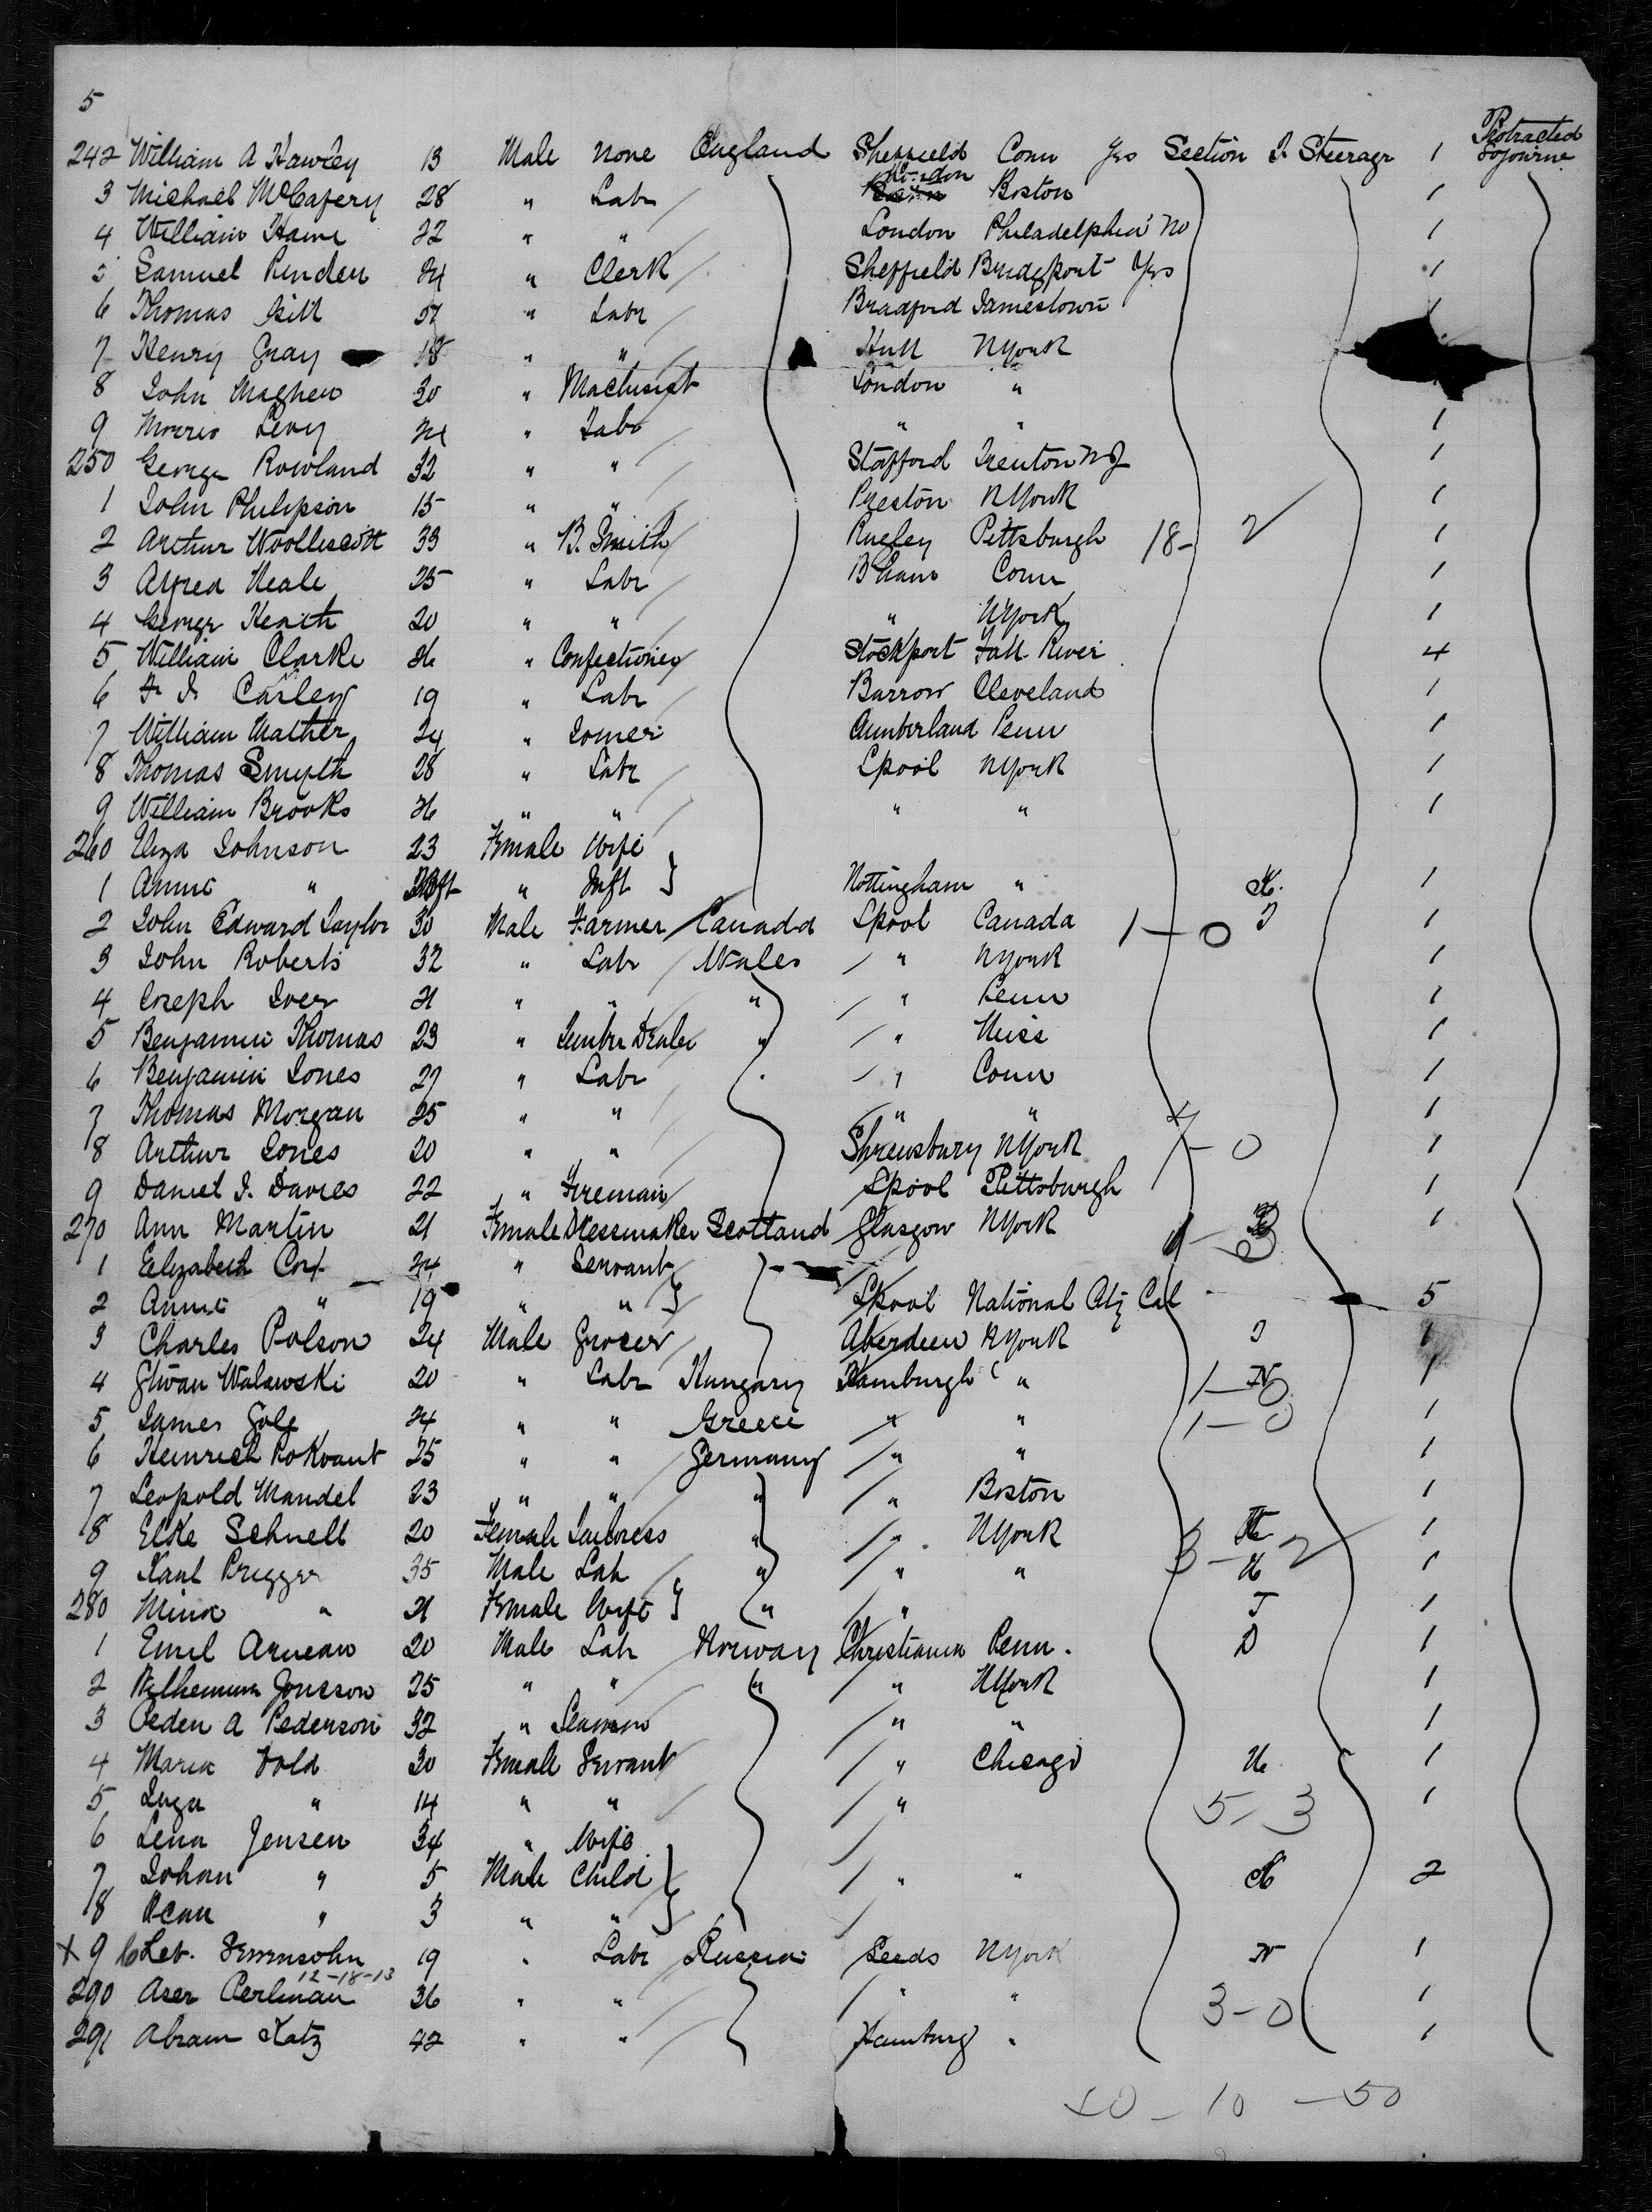 5
242 William A Hawley 13 Male None England Sheffield Conn Yes Section I Steerage 1 Protracted Sojourne
3 Michael McCafery 28 " Labr London Boston 1
4 William Hame 22 " " London Philadelphia No 1
5 Samuel Pinder 24 " Clerk Sheffield Bridgeport Yes 1
6 Thomas 27 " Labr Bradford Jamestown 1
7 Henry Gray 18 " " Hull NYork
8 John Maghew 30 " Machinist London "
9 Morris Levy 24 " Labr " " 1
250 George Rowland 32 " " Stafford Trenton NJ 1
1 John Philipson 15 " " Preston NYork 1
2 Arthur Woolliscott 33 " B. Smith Rugley Pittsburgh 18- 2 1
3 Alfred Neale 25 " Labr Bham Conn 1
4 George Heath 20 " " " NYork 1
5 William Clarke 26 " Confectioner Stockport Fall River 4
6 Carley 19 " Labr Barrow Cleveland 1
7 William Mather 24 " Cumberland Penn 1
8 Thomas Smyth 28 " Labr Lpool NYork 1
9 William Brooks 26 " " " " 1
260 Eliza Johnson 23 Female Wife
1 Annie " " Inft } Nottingham " 1
2 John Edward Taylor 30 Male Farmer Canada Lpool Canada 1-0 1
3 John Roberts 32 " Labr Wales " NYork 1
4 Joseph Iver 21 " " " " Penn 1
5 Benjamin Thomas 23 " Dealer " " 1
6 Benjamin Jones 27 " Labr " Conn 1
7 Thomas Morgan 25 " " " " 1
8 Arthur Jones 20 " " Shrewsbury NYork 7-0 1
9 Daniel J. Davies 22 " Fireman Lpool Pittsburgh 1
270 Ann Martin 21 Female Dressmaker Scotland Glasgow NYork 1
1 Elizabeth Cox 24 " Servant
2 Annie " 19 " " } Lpool National City Cal 5
3 Charles Polson 24 Male Grocer Aberdeen NYork 1
4 Walawski 20 " Labr Hungary Hamburgh " 1-0 1
5 James 24 " " Greece " " 1-0 1
6 Heinrich Rokvant 25 " " Germany " " 1
7 Leopold Mandel 23 " " " " Boston 1
8 Elke Schnell 20 Female Tailoress " " NYork 1
9 Karl Prigger 35 Male Labr " " " 3-2 1
280 Mina " 21 Female Wife } " " 1
1 Emil 20 Male Labr Norway Christiania Penn. 1
2 Jonsson 25 " " " " NYork 1
3 Peder A Pederson 32 " Seaman " " 1
4 Maria Vold 30 Female Servant " Chicago 1
5 Inga " 14 " " " 5-3 1
6 Lena Jensen 34 " Wife
7 Johan " 5 Male Child } " " 2
8 " 3 " "
x 9 Leb. 19 " Labr Russia Leeds NYork N 1
12-18-13
290 Aser Perlman 36 " " " " 3-0 1
291 Abram Katz 42 " " Hamburg " 1
40 - 10 - 50